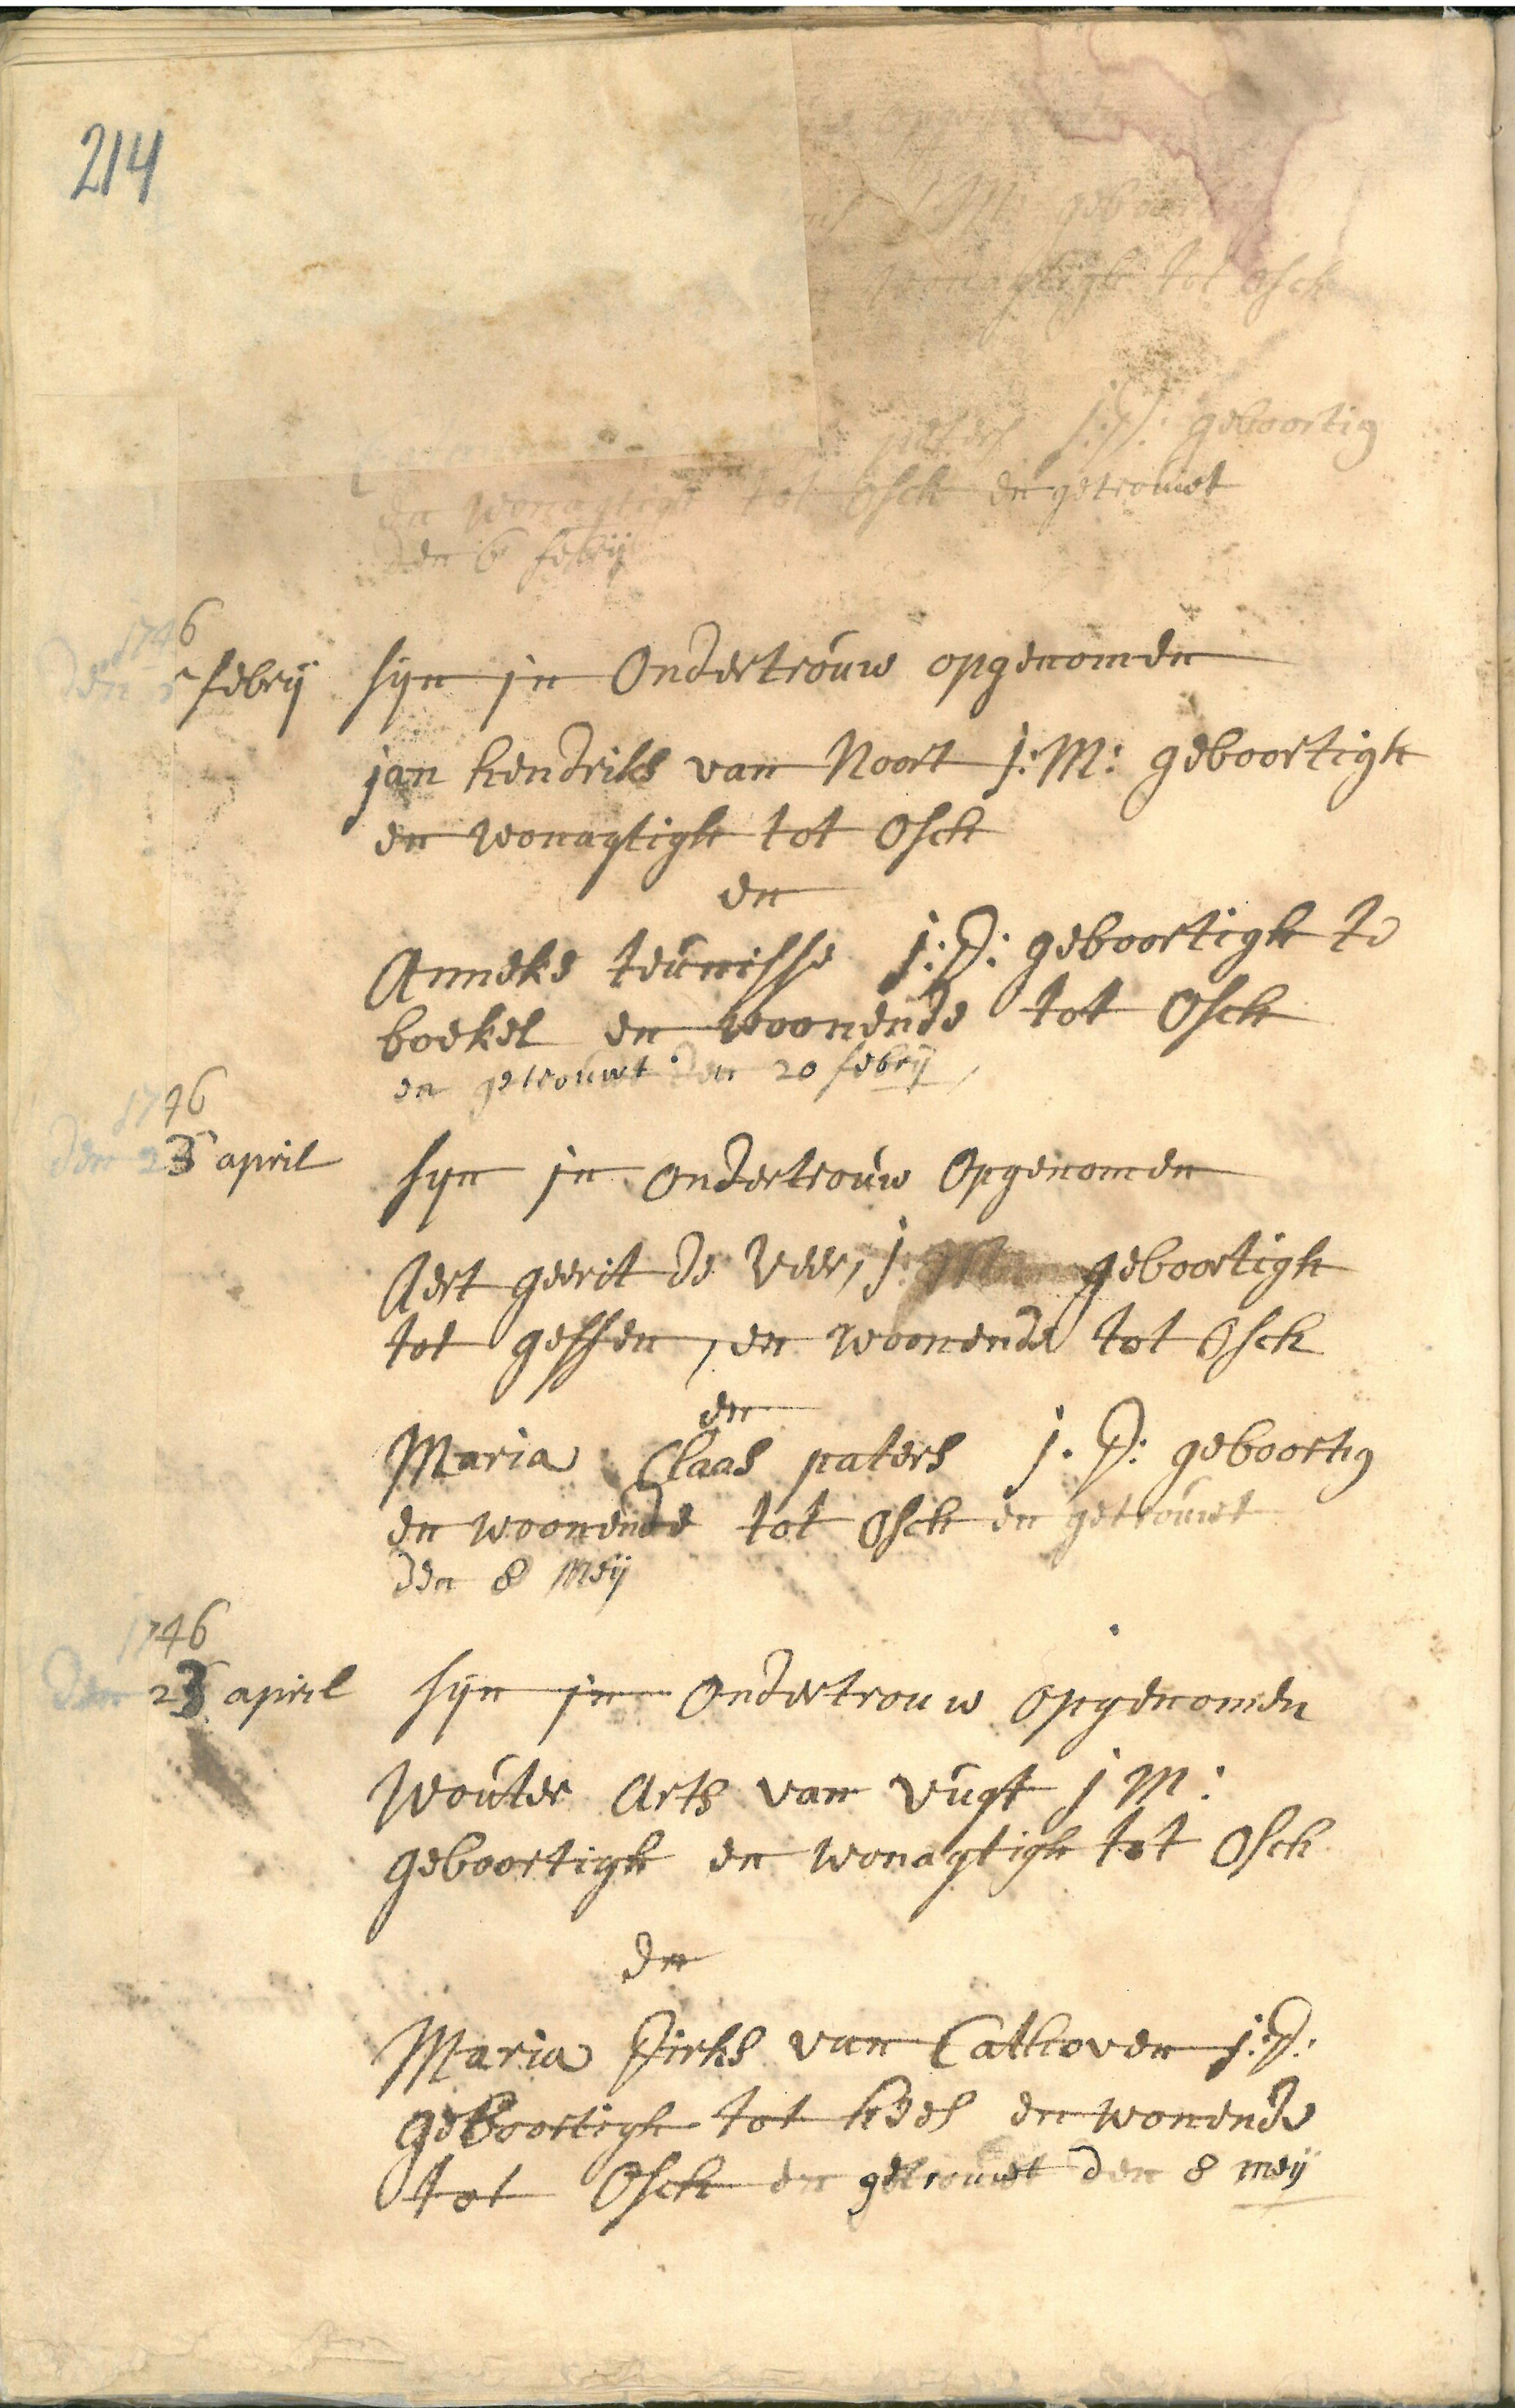 214
J M: geboortigh
wonagtigh tot Osch
peters j: D: geboortig
en wonagtigh tot Osch en getrouwt
den 6 febrij
1746
den 5 febrij
sijn in Ondertrouw opgenomen
jan hendriks van Noort j: M: geboortigh
en wonagtigh tot Osch
en
Anneke teunisse j: D: geboortigh te
boekel en woonende tot Osch
en getrouwt den 20 febrij
1746
den 23 april
sijn in ondertrouw Opgenomen
Aert geerit de Veer, j: M: geboortigh
tot geffen, en woonende tot Osch
en
Maria Claas paters j. D: geboortig
en woonende tot Osch en getrouwt
den 8 Meij
1746
den 23 april
sijn in Ondertrouw Opgenomen
Wouter Arts van Vugt j M:
geboortigh en wonagtigh tot Osch
en
Maria Dirks van Cathoven j: D:
geboortigh tot hees en wonende
tot Osch en getrouwt den 8 meij